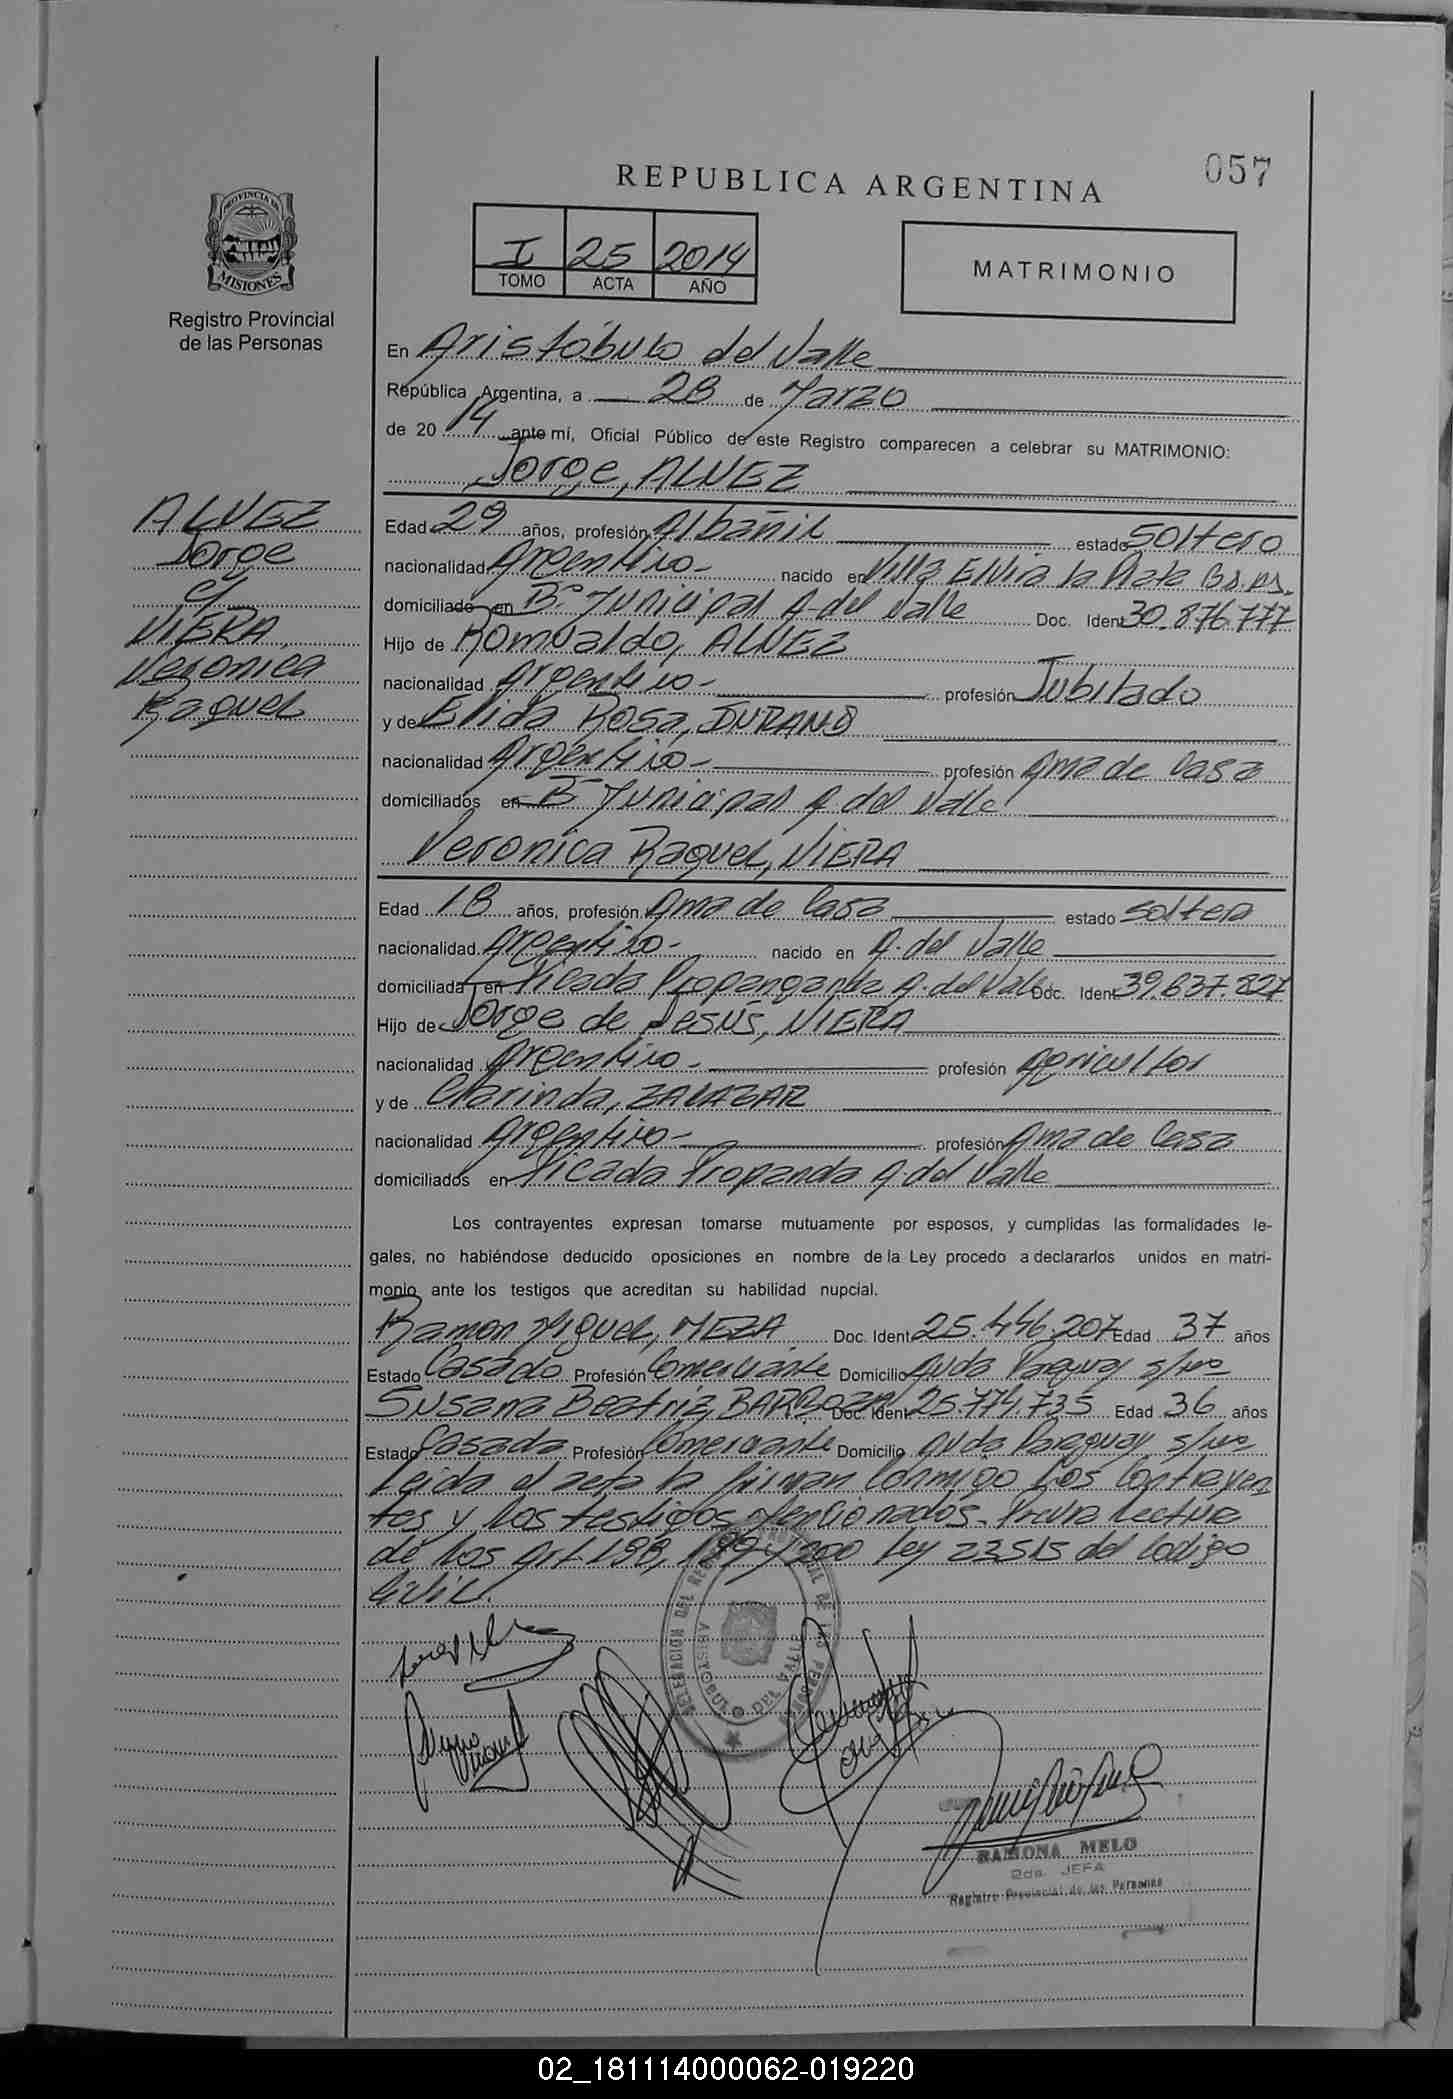 057
REPUBLICA ARGENTINA
PROVINCIA DE
MISIONES
I 25 2014
TOMO ACTA AÑO
MATRIMONIO
Registro Provincial
de las Personas
En Aristóbulo del Valle
República Argentina, a 28 de Marzo
de 2014 ante mí, Oficial Público de este Registro comparecen a celebrar su MATRIMONIO:
Jorge, ALVEZ
ALVEZ
Jorge
y
VIERA
Veronica
Raquel
Edad 29 años, profesión Albañil estado Soltero
nacionalidad Argentino - nacido en Villa Elvira La Plata Bs. As.
domiciliado en Bº Municipal A. del Valle Doc. Ident 30.876.777
Hijo de Romualdo, ALVEZ
nacionalidad Argentino - profesión Jubilado
y de Elida Rosa, DURAND
nacionalidad Argentino - profesión Ama de Casa
domiciliados en Bº Municipal A. del Valle
Veronica Raquel, VIERA
Edad 18 años, profesión Ama de Casa estado soltera
nacionalidad Argentino - nacido en A. del Valle
domiciliada en Picada Propanganda A. del Valle Doc. Ident 39.637.827
Hijo de Jorge de Jesús, VIERA
nacionalidad Argentino - profesión Agricultor
y de Clarinda, ZALAZAR
nacionalidad Argentino - profesión Ama de Casa
domiciliados en Picada Propanda A. del Valle
Los contrayentes expresan tomarse mutuamente por esposos, y cumplidas las formalidades le-
gales, no habiéndose deducido oposiciones en nombre de la Ley procedo a declararlos unidos en matri-
monio ante los testigos que acreditan su habilidad nupcial.
Ramon Miguel, MEZA Doc. Ident 25.446.207 Edad 37 años
Estado Casado Profesión Comerciante Domicilio Avda Paraguay s/nº
Susana Beatriz, BARBOZA Doc. Ident 25.774.735 Edad 36 años
Estado Casada Profesión Comerciante Domicilio Avda Paraguay s/nº
Leida el acta la firman Conmigo Los Contrayen
tes y Los testigos Mencionados. Previa Lectura
de Los Art 198, 199 y 200 Ley 23515 del Codigo
Civil.
RAMONA MELO
2da. JEFA
Registro Provincial de las Personas
02_181114000062-019220